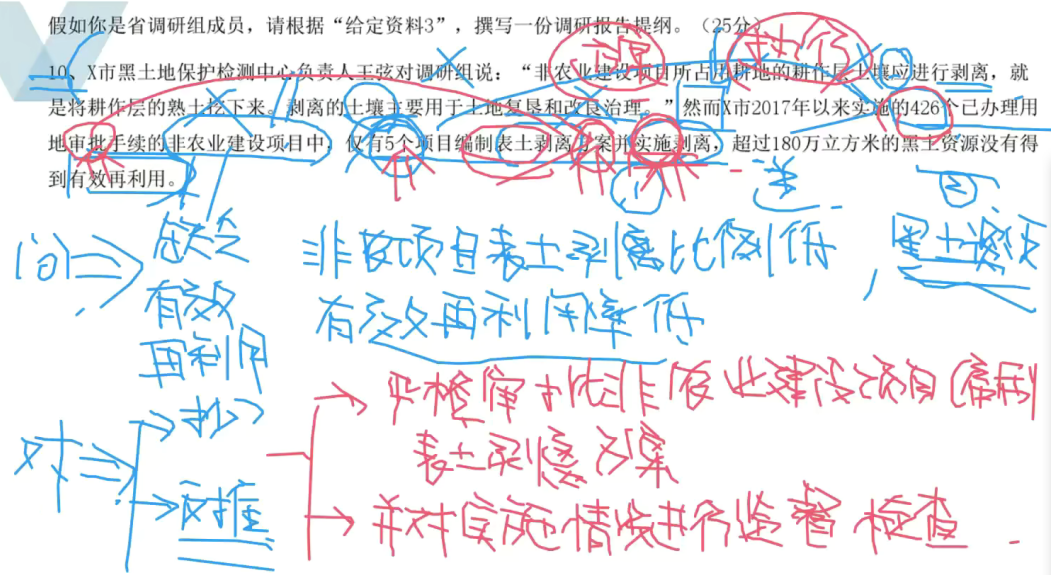 假如你是省调研组成员，请根据“给定资料3”，撰写一份调研报告提纲。（25分）
10、X市黑土地保护检测中心负责人王弦对调研组说：“非农业建设项目所占黑耕地的耕作层土壤应进行剥离，就
是将耕作层的熟土挖下来。剥离的土壤主要用于土地复垦和改良治理。”然而X市2017年以来实施的426个已办理用
地审批手续的非农业建设项目中，仅有5个项目编制表土剥离方案并实施剥离，超过180万立方米的黑土资源没有得
到有效再利用。
问 缺乏 非农项目表土剥离比例低，黑土资源
有效 有效再利用率低
再利用
对 抄 严格审批非农业建设项目编制
表土剥离方案
反推 并对实施情况进行监督检查.